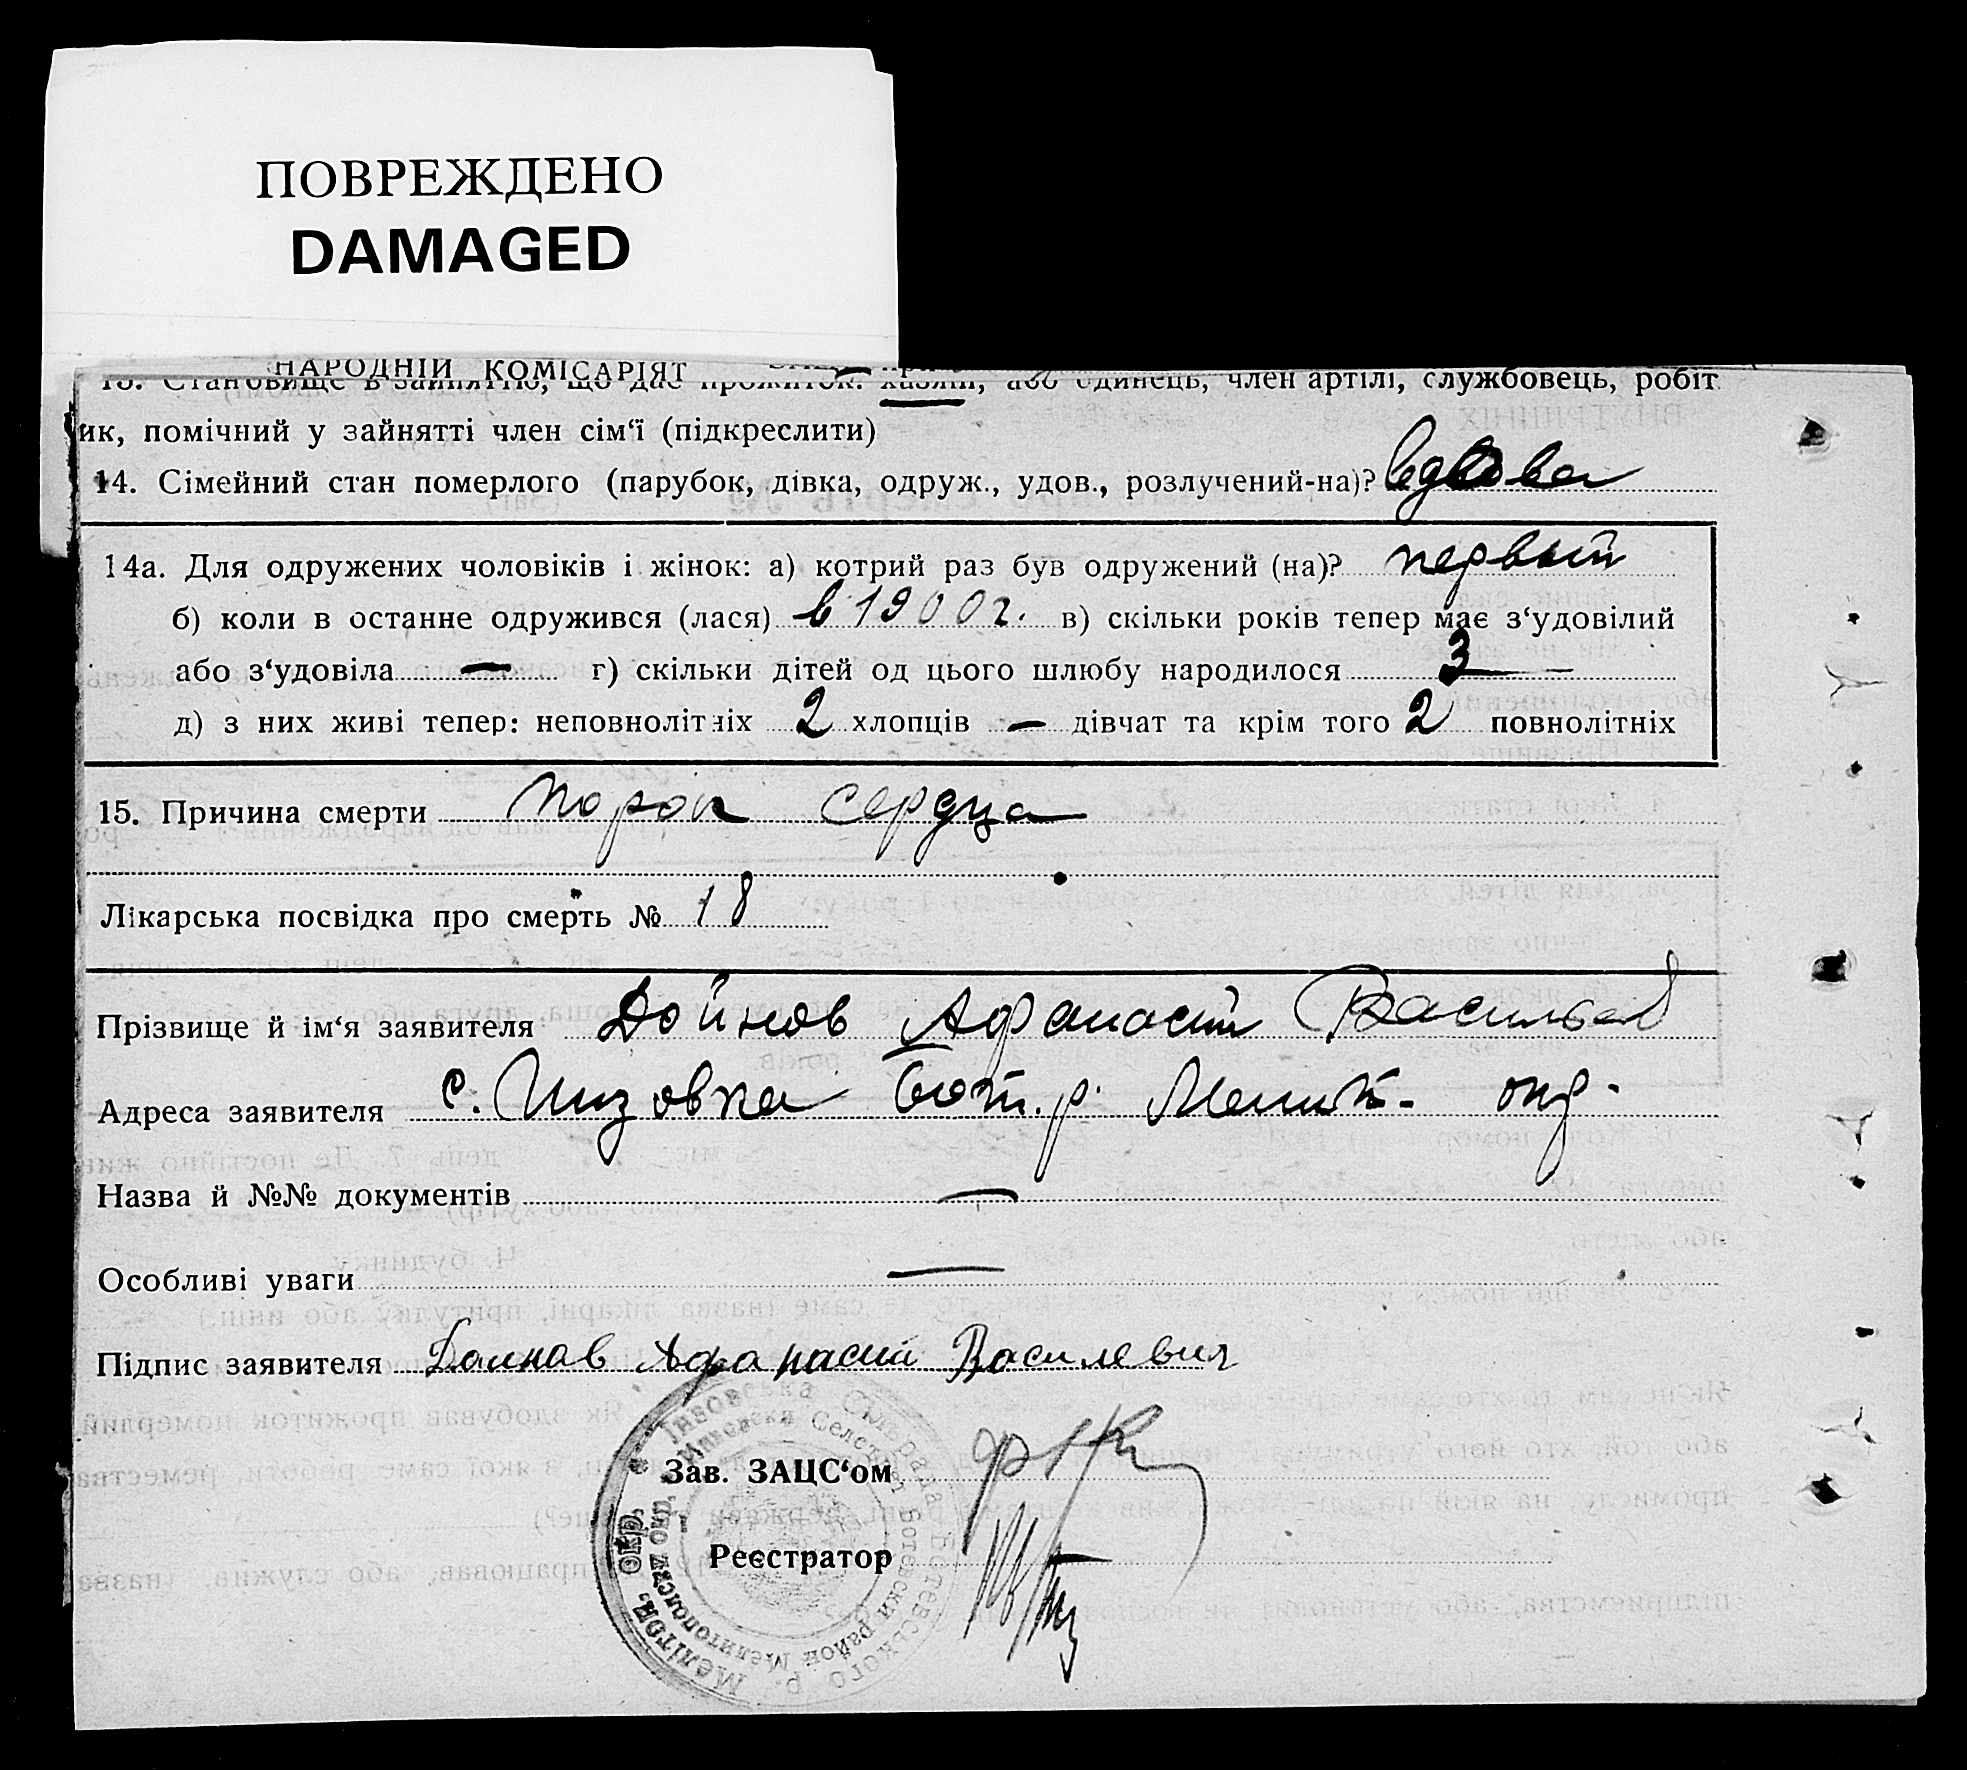 ПОВРЕЖДЕНО
DAMAGED
НАРОДНІЙ КОМІСАРІЯТ
13. Становище в зайнятті, що дає прожиток: хазяїн, або одинець, член артілі, службовець, робіт
ик, помічний у зайнятті член сім'ї (підкреслити)
14. Сімейний стан померлого (парубок, дівка, одруж., удов., розлучений-на)? вдова
14а. Для одружених чоловіків і жінок: а) котрий раз був одружений (на)? первый
б) коли в останне одружився (лася) в 1900 г. в) скільки років тепер має з'удовілий
або з'удовіла — г) скільки дітей од цього шлюбу народилося 3 —
д) з них живі тепер: неповнолітніх 2 хлопців — дівчат та крім того 2 повнолітніх
15. Причина смерти порок сердца
Лікарська посвідка про смерть № 18
Прізвище й ім'я заявителя Дойнов Афанасий Васильев
Адреса заявителя с. Инзовка Бот. р. Мелит. окр.
Назва й №№ документів —
Особливі уваги —
Підпис заявителя Доинав Афанасий Василевич
Зав. ЗАЦС'ом
Реєстратор
Інзовська Сільрада Ботєвського р. Мелітоп. окр.
Инзовски Селсвет Ботевски район Мелитополски окр.